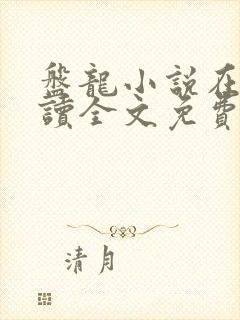 盤龍小說在
讀全文免費
清月